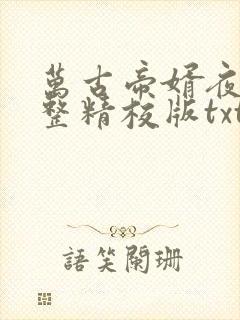 萬古帝婿夜
整精校版txt
語笑闌珊